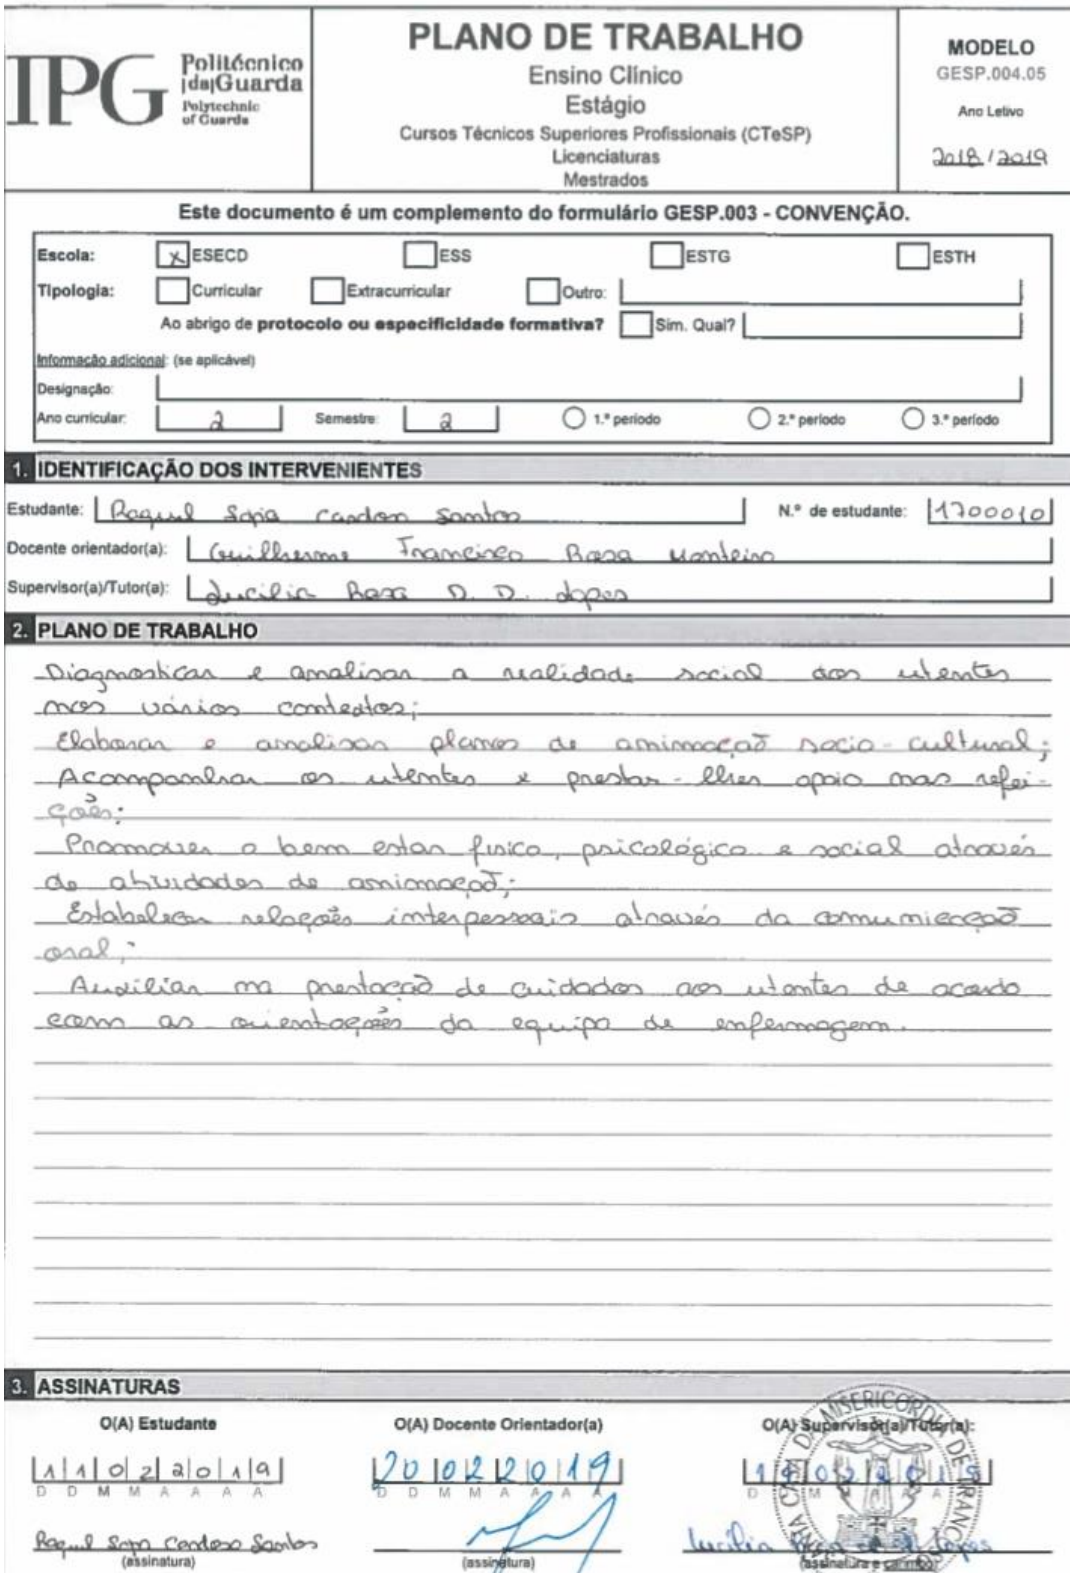 IPG
Politécnico
|da|Guarda
Polytechnic
of Guarda
PLANO DE TRABALHO
Ensino Clínico
Estágio
Cursos Técnicos Superiores Profissionais (CTeSP)
Licenciaturas
Mestrados
MODELO
GESP.004.05
Ano Letivo
2018/2019
Este documento é um complemento do formulário GESP.003 - CONVENÇÃO.
Escola: x ESECD ESS ESTG ESTH
Tipologia: Curricular Extracurricular Outro:
Ao abrigo de protocolo ou especificidade formativa? Sim. Qual?
Informação adicional: (se aplicável)
Designação:
Ano curricular: 2 Semestre: 2 1.º período 2.º período 3.º período
1. IDENTIFICAÇÃO DOS INTERVENIENTES
Estudante: Raquel Sofia Cardoso Santos N.º de estudante: 1700010
Docente orientador(a): Guilherme Francisco Rosa Monteiro
Supervisor(a)/Tutor(a): Lucília Rosa D. D. Lopes
2. PLANO DE TRABALHO
Diagnosticar e analisar a realidade social dos utentes
nos vários contextos;
Elaborar e analisar planos de animação socio-cultural;
Acompanhar os utentes e prestar-lhes apoio nas refei-
ções;
Promover o bem estar fisico, psicológico e social através
de atividades de animação;
Estabelecer relações interpessoais através da comunicação
oral;
Auxiliar na prestação de cuidados aos utentes de acordo
com as orientações da equipa de enfermagem.
3. ASSINATURAS
O(A) Estudante O(A) Docente Orientador(a) O(A) Supervisor(a)/Tutor(a):
11022019 20022019 19022019
D D M M A A A A D D M M A A A A D M A A A
Raquel Sofia Cardoso Santos Lucília Rosa Lopes
(assinatura) (assinatura) (assinatura e carimbo)
CASA DA MISERICORDIA DE